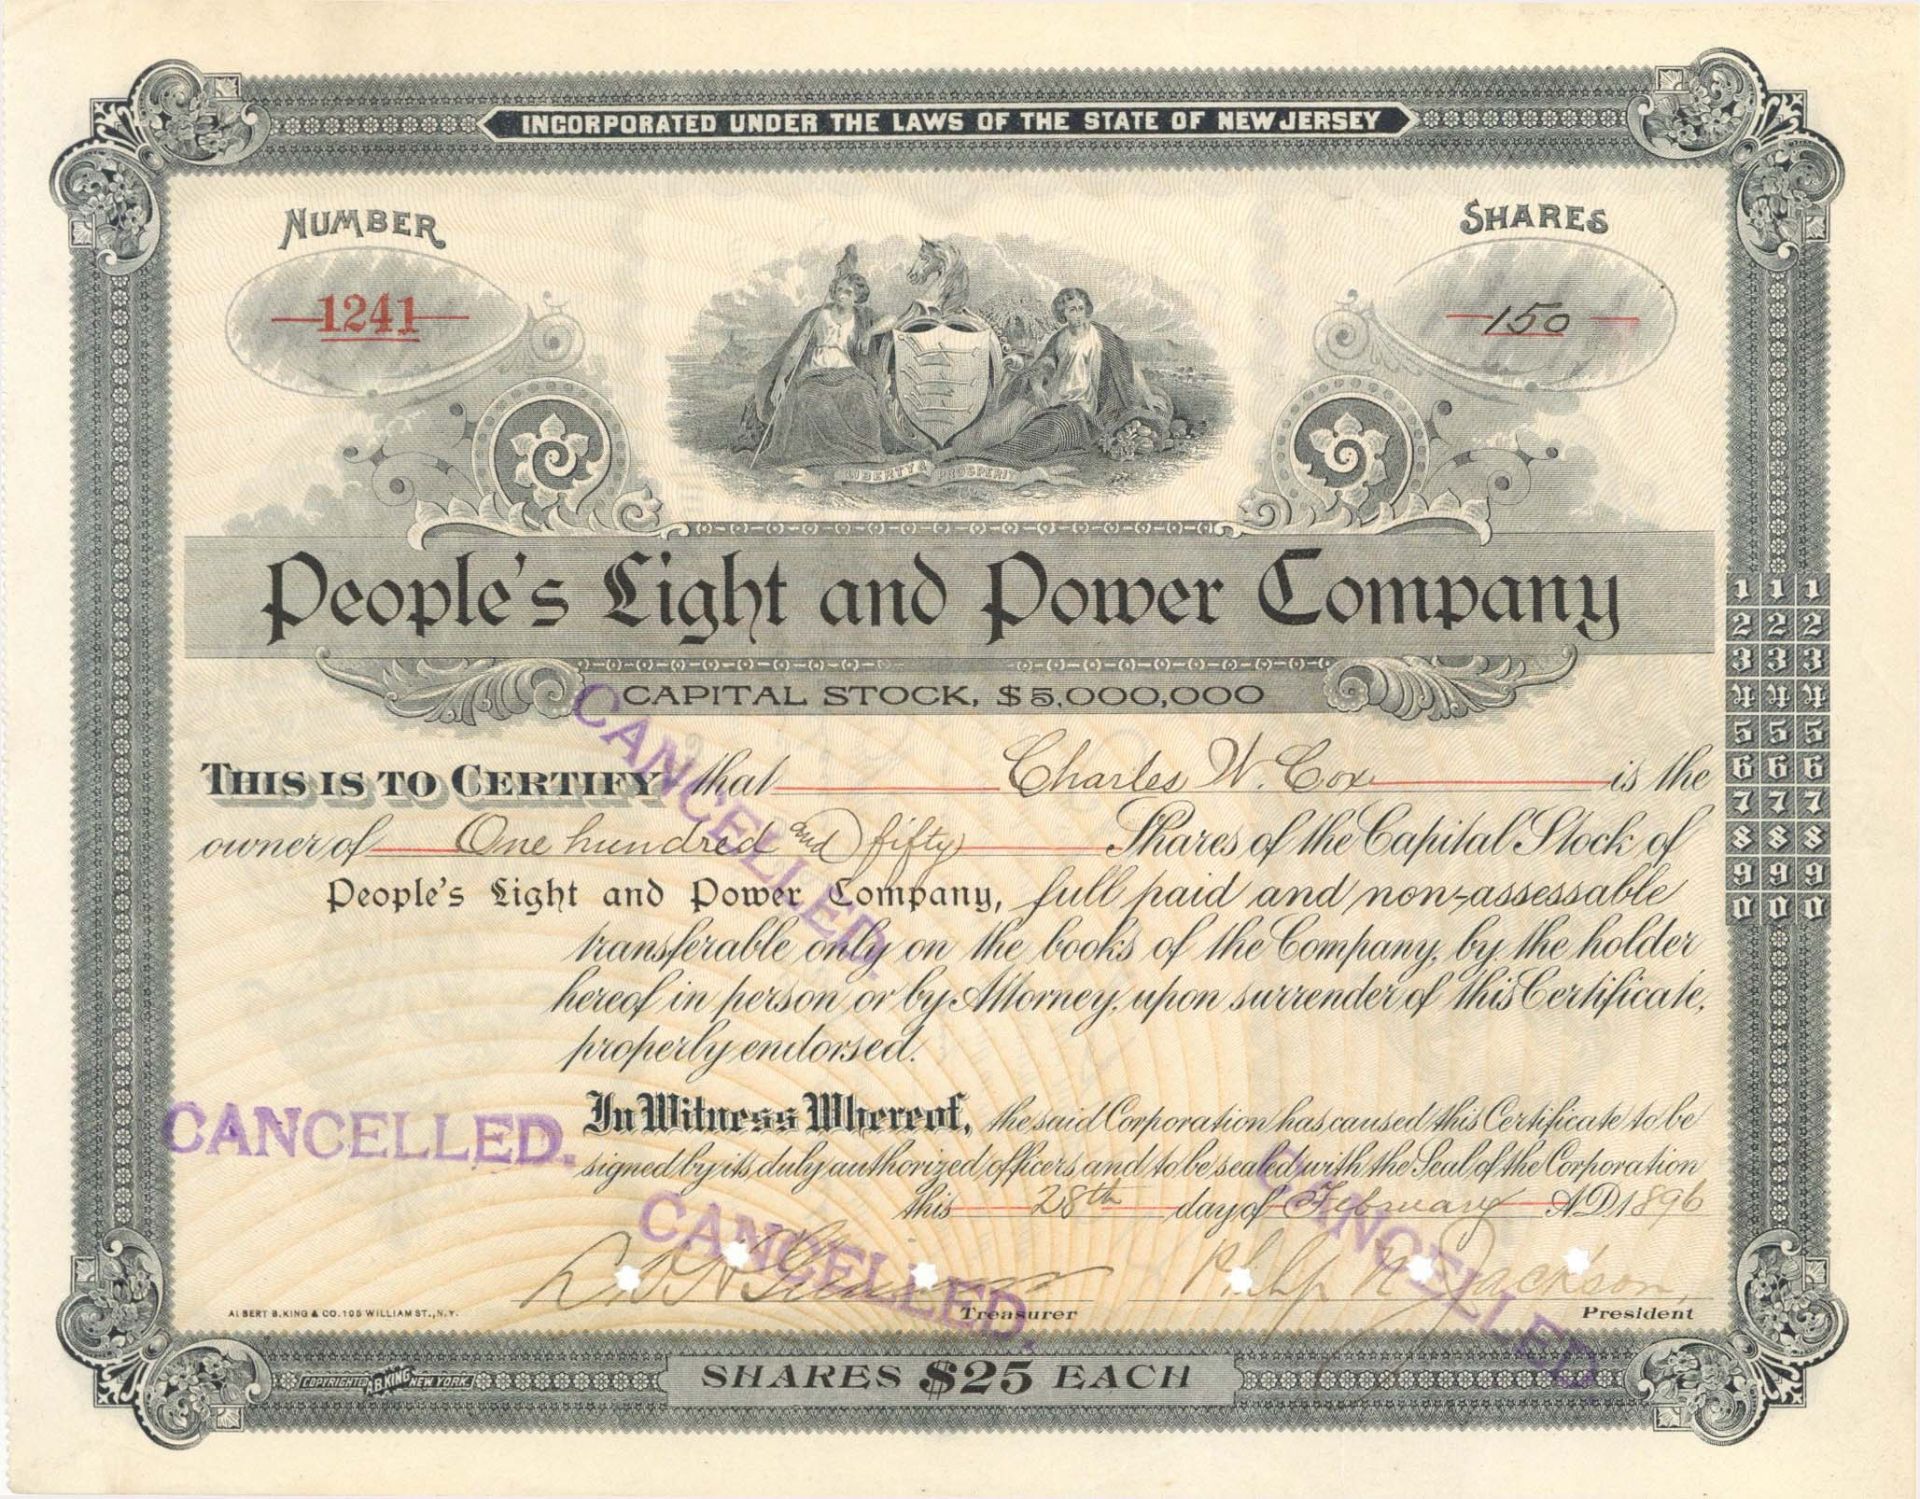 INCORPORATED UNDER THE LAWS OF THE STATE OF NEW JERSEY
NUMBER
SHARES
1241
150
LIBERTY & PROSPERITY
People's Light and Power Company
CAPITAL STOCK, $5,000,000
THIS IS TO CERTIFY that Charles W. Cox is the
owner of One hundred and fifty Shares of the Capital Stock of
People's Light and Power Company, full paid and non-assessable
transferable only on the books of the Company, by the holder
hereof in person or by Attorney, upon surrender of this Certificate,
properly endorsed.
In Witness Whereof, the said Corporation has caused this Certificate to be
signed by its duly authorized officers and to be sealed with the Seal of the Corporation
this 28th day of February A.D. 1896
Philip N. Jackson
Treasurer
President
ALBERT B. KING & CO. 105 WILLIAM ST., N.Y.
COPYRIGHTED A.B. KING NEW YORK
SHARES $25 EACH
CANCELLED.
CANCELLED.
CANCELLED.
CANCELLED
1 1 1
2 2 2
3 3 3
4 4 4
5 5 5
6 6 6
7 7 7
8 8 8
9 9 9
0 0 0